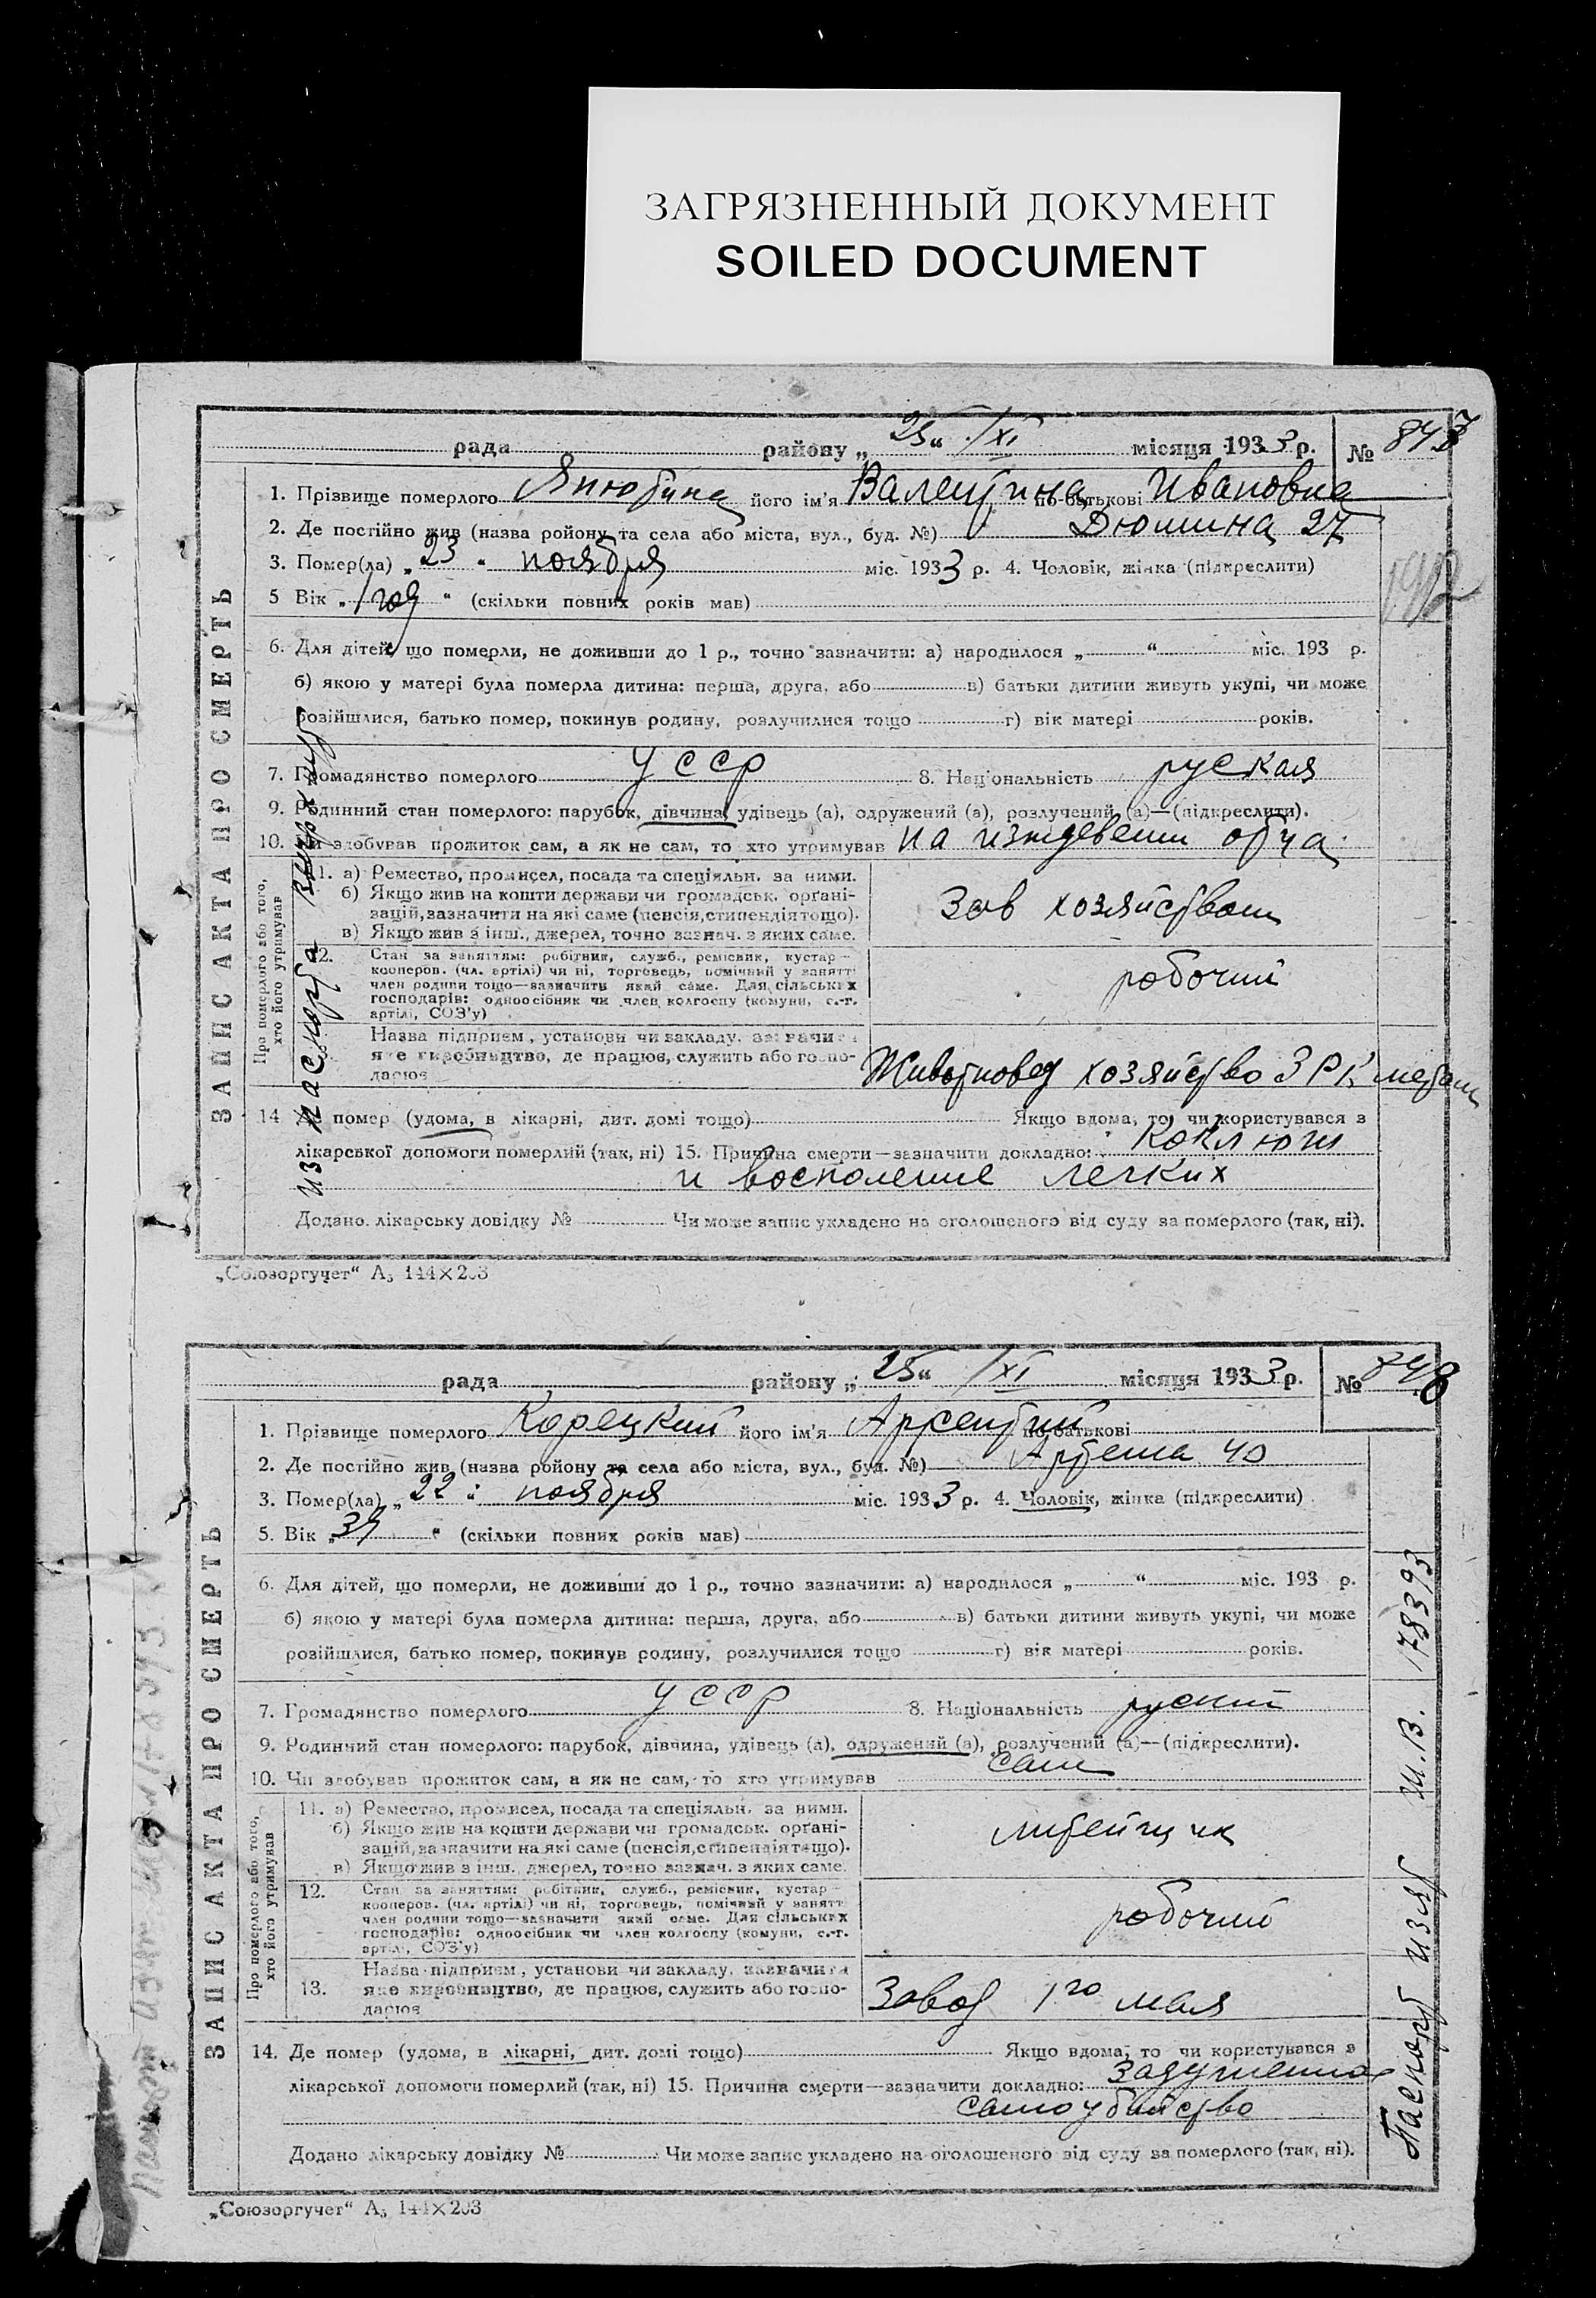 ЗАГРЯЗНЕННЫЙ ДОКУМЕНТ
SOILED DOCUMENT
рада району „25“ /XI місяця 1933 р. № 847
1. Прізвище померлого його ім'я Валентина по-батькові Ивановна
2. Де постійно жив (назва ройону та села або міста, вул., буд. №) Дюшина 27
3. Помер(ла) „23“ ноября міс. 1933 р. 4. Чоловік, жінка (підкреслити)
5 Вік „1 год“ (скільки повних років мав)
1912
6. Для дітей, що померли, не доживши до 1 р., точно зазначити: а) народилося „ “ міс. 193 р.
б) якою у матері була померла дитина: перша, друга, або в) батьки дитини живуть укупі, чи може
розійшлися, батько помер, покинув родину, розлучилися тощо г) вік матері років.
7. Громадянство померлого УССР 8. Національність руская
9. Родинний стан померлого: парубок, дівчина, удівець (а), одружений (а), розлучений (а)—(підкреслити).
10. Чи здобував прожиток сам, а як не сам, то хто утримував на иждевении отца
ЗАПИС АКТА ПРО СМЕРТЬ
Про померлого або того, хто його утримував
11. а) Ремество, промисел, посада та спеціяльн. за ними.
б) Якщо жив на кошти держави чи громадськ. орґані-
зацій, зазначити на які саме (пенсія, стипендія тощо).
в) Якщо жив з інш., джерел, точно зазнач. з яких саме.
Зав хозяйством
12. Стан за заняттям: робітник, служб., ремісник, кустар—
кооперов. (чл. артілі) чи ні, торговець, помічний у занятті
член родини тощо—зазначити який саме. Для сільських
господарів: одноосібник чи член колгоспу (комуни, с.-г.
артілі, СОЗ'у)
робочий
Назва підприєм., установи чи закладу, зазначити
яке виробництво, де працює, служить або госпо-
дарює
Животновод хозяйство ЗРК метал
из паспорта
14 Де помер (удома, в лікарні, дит. домі тощо) Якщо вдома, то чи користувався з
лікарської допомоги померлий (так, ні) 15. Причина смерти—зазначити докладно: Коклюш
и восполение легких
Додано лікарську довідку № Чи може запис укладено на оголошеного від суду за померлого (так, ні).
„Союзоргучет“ А₅ 144×203
рада району „25“ /XI місяця 1933 р. № 848
1. Прізвище померлого Корецкий його ім'я Арсентий по-батькові
2. Де постійно жив (назва ройону та села або міста, вул., буд. №) Артема 40
3. Помер(ла) „22“ ноября міс. 1933 р. 4. Чоловік, жінка (підкреслити)
5. Вік „39“ (скільки повних років мав)
6. Для дітей, що померли, не доживши до 1 р., точно зазначити: а) народилося „ “ міс. 193 р.
б) якою у матері була померла дитина: перша, друга, або в) батьки дитини живуть укупі, чи може
розійшлися, батько помер, покинув родину, розлучилися тощо г) вік матері років.
7. Громадянство померлого УССР 8. Національність руский
9. Родинний стан померлого: парубок, дівчина, удівець (а), одружений (а), розлучений (а)—(підкреслити).
10. Чи здобував прожиток сам, а як не сам, то хто утримував сам
ЗАПИС АКТА ПРО СМЕРТЬ
Про померлого або того, хто його утримував
11. а) Ремество, промисел, посада та спеціяльн. за ними.
б) Якщо жив на кошти держави чи громадськ. орґані-
зацій, зазначити на які саме (пенсія, стипендія тощо).
в) Якщо жив з інш., джерел, точно зазнач. з яких саме.
литейщик
12. Стан за заняттям: робітник, служб., ремісник, кустар—
кооперов. (чл. артілі) чи ні, торговець, помічний у занятті
член родини тощо—зазначити який саме. Для сільських
господарів: одноосібник чи член колгоспу (комуни, с.-г.
артілі, СОЗ'у)
робочий
13. Назва підприєм., установи чи закладу, зазначити
яке виробництво, де працює, служить або госпо-
дарює
Завод 1го мая
14. Де помер (удома, в лікарні, дит. домі тощо) Якщо вдома, то чи користувався з
лікарської допомоги померлий (так, ні) 15. Причина смерти—зазначити докладно: задушение
самоубийство
Додано лікарську довідку № Чи може запис укладено на оголошеного від суду за померлого (так, ні).
Паспорт изят Ш.В. 178393
„Союзоргучет“ А₅ 144×203